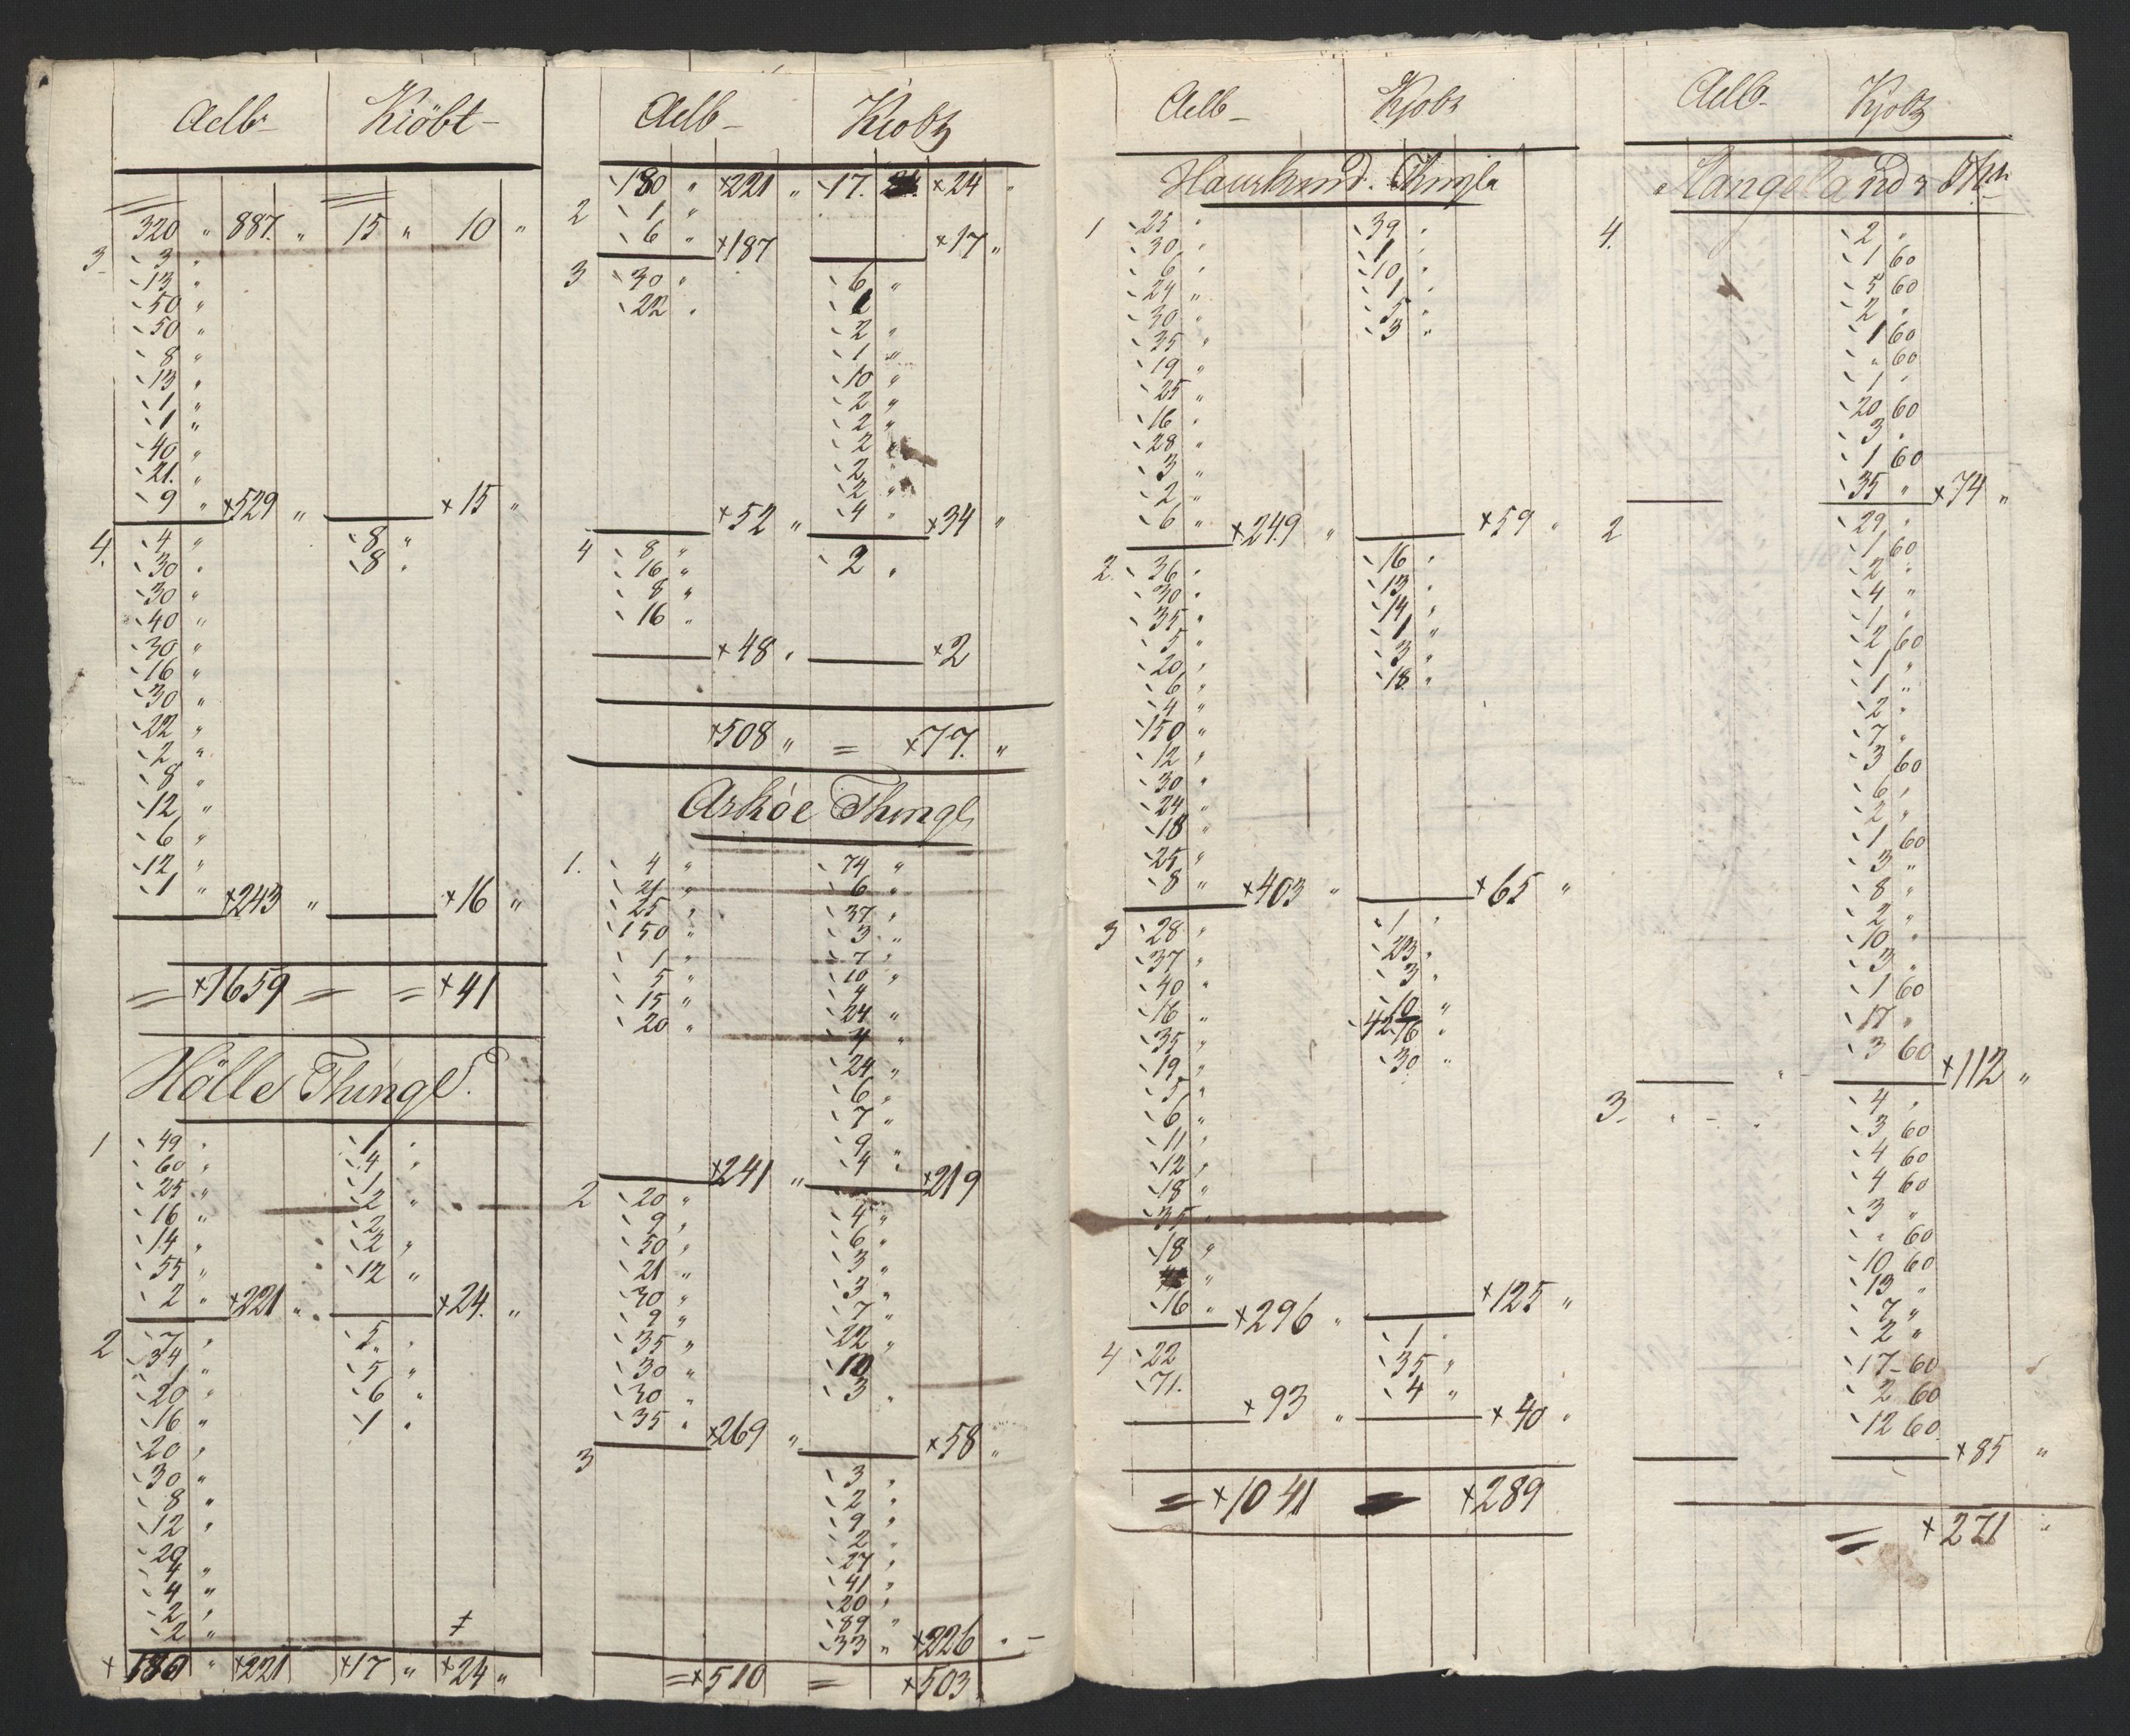 Aelb- Kiöbt-
320 " 887. " 15 " 10 "
3- 3 "
13 "
50 "
50 "
8 "
13 "
1 "
1 "
40 "
21. "
9 " +529 " +15 "
4. 4 " 8 "
30 " 8 "
30 "
40 "
30 "
16 "
30 "
22 "
2 "
8 "
12 "
6 "
12 "
1 " +243 " +16 "
= +1659 = = +41
Hölle Thingl.
1 49 " 1 "
60 " 4 "
25 " 1 "
16 " 2 "
14 " 2 "
55 " 2 "
2 " +221 " 12 " +24. "
2 7 " 5 "
34 " 5 "
1 " 6 "
20 " 1 "
16 "
20 "
30 "
8 "
12 "
20
4 "
4 "
2 "
2 "
+ 180 " +221 +17 " +24 "
Aelb- Kiobt
180 " +221 " 17. +24 "
2 1 "
6 " +187 +17 "
3 30 " 6 "
22 " 1
2 "
1 "
10 "
2 "
2 "
2 "
2 "
2 "
+52 " 4 " +34 "
4 8 " 2 "
16 "
8 "
16 "
+48 " +2
+508 " = +77. "
Askóe Thingl
1. 4 " 74 "
21 " 6 "
25 " 37 "
150 " 3 "
1 " 7 "
5 " 10 "
15 " 4
20 " 24 "
4 "
24 "
6 "
7 "
9 "
+241 " 4 " +219
2 20 " 4 "
9 " 6 "
50 " 3 "
21 " 3 "
30 " 7 "
9 " 22 "
35 " 10
30 " 3 "
30 "
35 " +269 " +58 "
3 3 "
2 "
9 "
2 "
27 "
41 "
20 "
89 "
33 " +226 " -
=+510 = +503
Aelb- Kjobt
Hauslund. Thingla
1 25 " 39 "
30 " 1 "
6 " 10 "
24 " 1 "
30 " 5 "
35 " 3 "
19 "
25 "
16 "
28 "
3 "
2 "
6 " +249 " +59 "
2. 36 " 16 "
30 " 13 "
35 " 14 "
5 " 1 "
20 " 3 "
6 " 18 "
4 "
150 "
12 "
30 "
24 "
18 "
25 "
8 " +403 " +65 "
3 28 " 1 "
37 " 23 "
40 " 3 "
16 " 10 "
35 "
19 " 30 "
5 "
6 "
11 "
12 "
18 "
35 "
18 "
16 " +296 " +125 "
4 22 1 "
71. 35 "
+93 " 4 " +40 "
= +1041 = +289
Aelb- Kjobt
4. 2 "
1 60
5 60
2 "
1 60
" 60
1 "
20 60
3 "
1 60
35 " +74 "
2 29 "
1 60
2 "
4 "
1 "
2 60
1 "
1 "
2 "
7 "
3 60
6 "
2 "
1 60
3 "
8 "
2 "
10 "
3 "
1 60
17 "
3 60 +112 "
3- 4 "
3 60
4 60
4 60
3 "
" 60
10 60
13 "
7 "
2 "
17- 60
2 60
12 60
+85 "
= +271 "